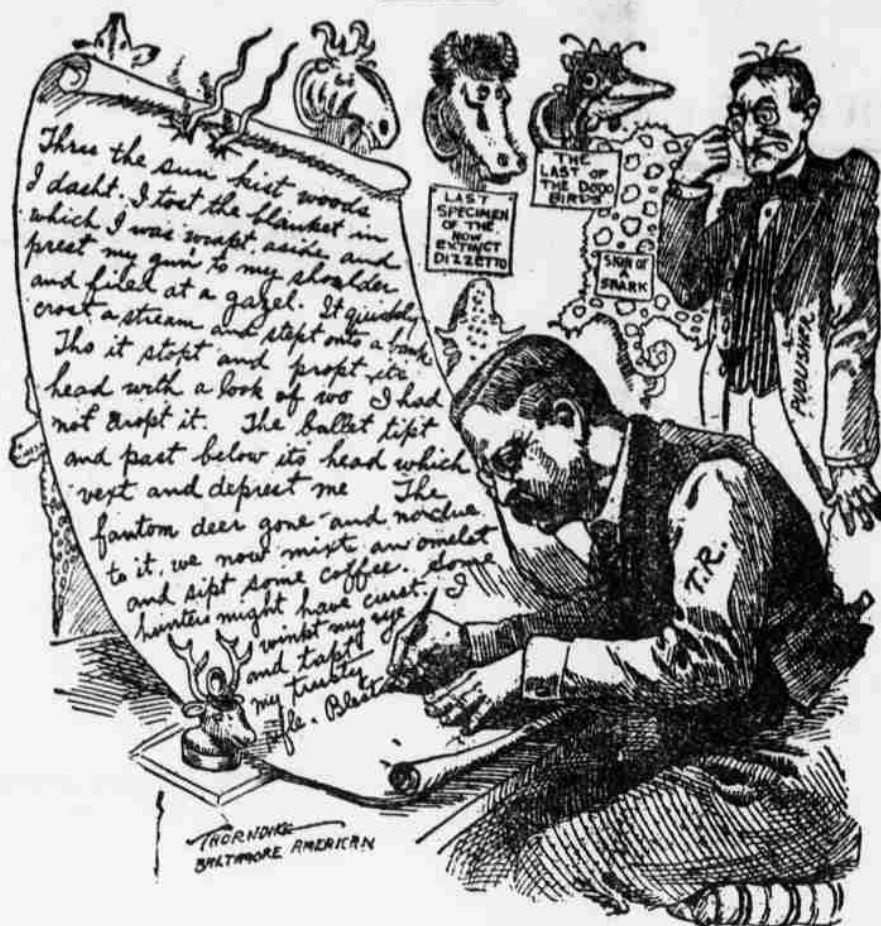 Thru the sun kist woods
I dasht. I tost the blanket in
which I was wrapt aside and
prest my gun to my shoulder
and fired at a gazel. It quickly
crost a stream and stept onto a bank
Tho it stopt and propt its
head with a look of wo I had
not dropt it. The bullet tipt
and past below its head which
vext and deprest me The
fantom deer gone and no clue
to it, we now mixt an omelet
and sipt some coffee. Some
hunters might have curst. I
winkt my eye
and tapt
my trusty
rifle. Blest
LAST
SPECIMEN
OF THE
NOW
EXTINCT
DIZZETTO
THE
LAST OF
THE DODO
BIRDS
SKIN OF
A
SNARK
PUBLISHER
T.R.
THORNDIKE
BALTIMORE AMERICAN